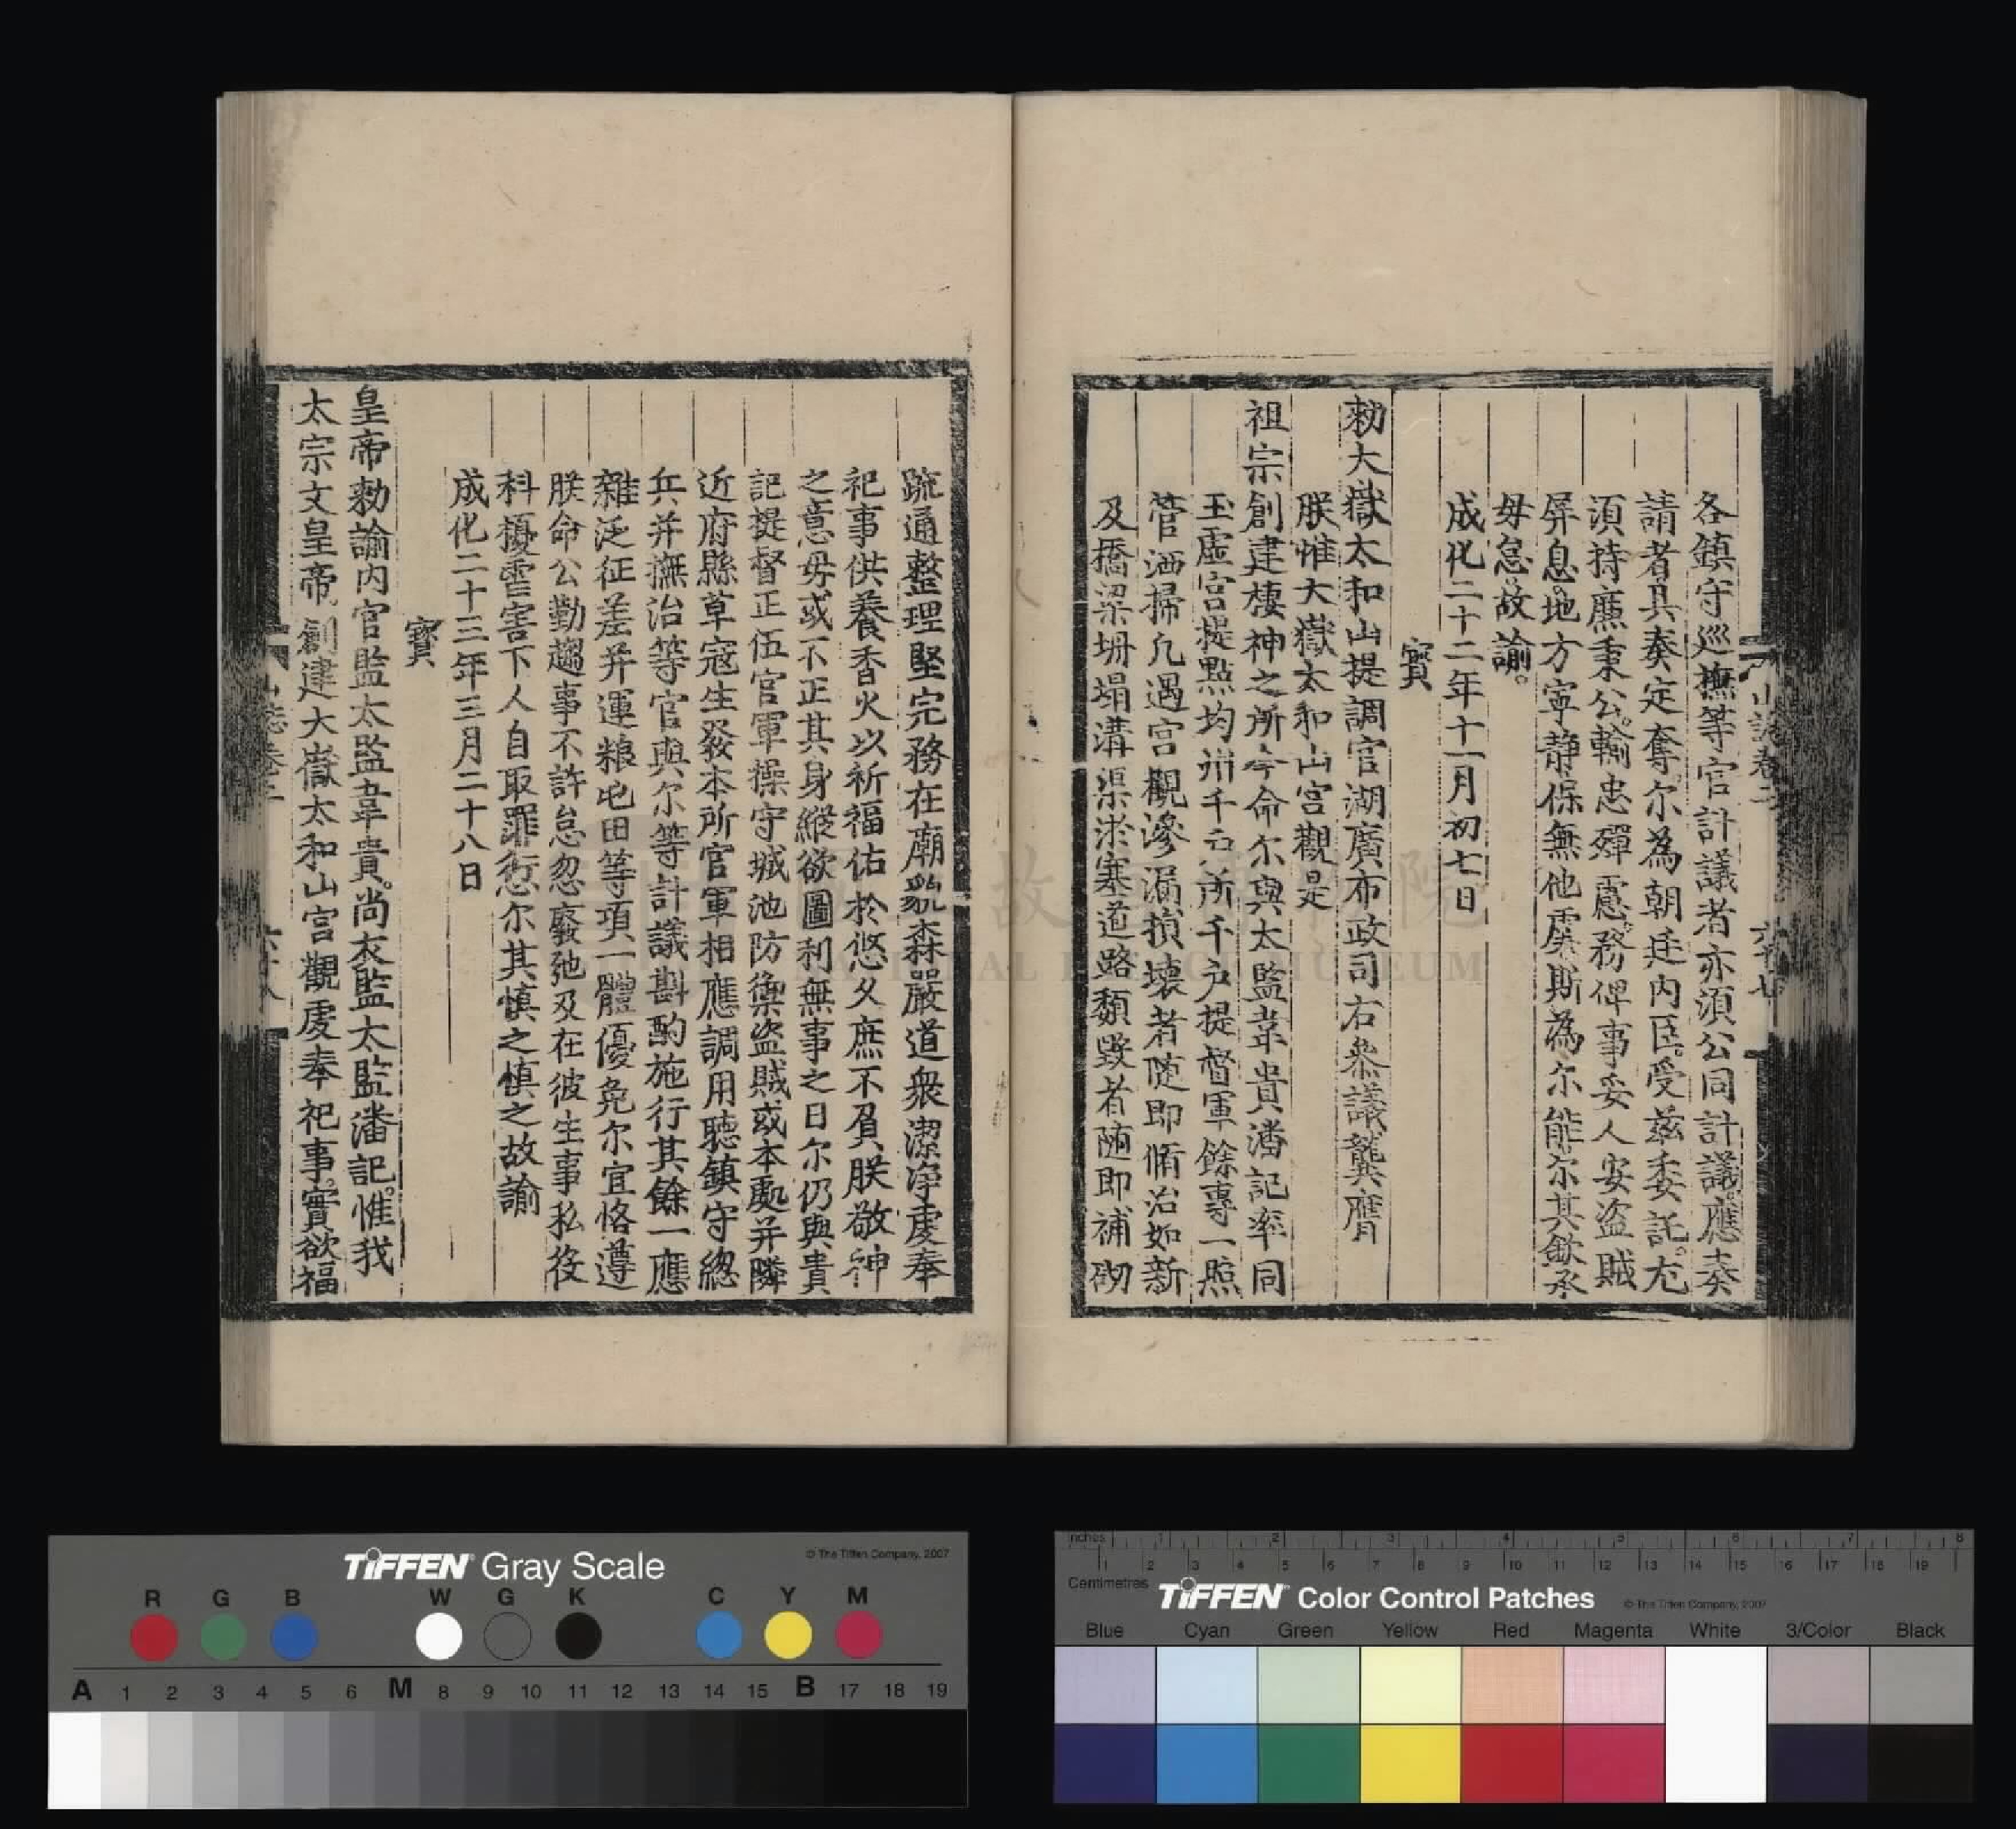 各鎮守巡撫等官計議者亦須公同計議應奏
請者具奏定奪尔為朝廷內臣受茲委託尤
須持廉秉公輸忠殫慮務俾事妥人安盜賊
屏息地方寧靜保無他虞斯為尔能尔其欽承
毋怠故諭
成化二十二年十一月初七日
寶
勅大嶽太和山提調官湖廣布政司右叅議龔膺
朕惟大嶽太和山宮觀是
祖宗創建棲神之所今命尔與太監韋貴潘記率同
玉虛宮提點均州千户所千户提督軍餘專一照
管洒掃凢遇宮觀滲漏損壞者隨即脩治如新
及橋梁坍塌溝渠淤塞道路頽毀者随即補砌
疏通整理堅完務在廟貌森嚴道衆潔净虔奉
祀事供養香火以祈福佑於悠久庶不負朕敬神
之意毋或不正其身縱欲圖利無事之日尔仍與貴
記提督正伍官軍操守城池防禦盜賊或本處并隣
近府縣草寇生發本所官軍相應調用聽鎮守緫
兵并撫治等官與尔等計議斟酌施行其餘一應
雜泛征差并運粮屯田等項一體優免尔宜恪遵
朕命公勤趨事不許怠忽廢弛及在彼生事私役
科擾害下人自取罪愆尔其慎之慎之故諭
成化二十三年三月二十八日
寶
皇帝勅諭內官監太監韋貴尚衣監太監潘記惟我
太宗文皇帝創建大嶽太和山宮觀虔奉祀事實欲福
山誌卷二
六十七
六十八
NATIONAL PALACE MUSEUM
TIFFEN Gray Scale
© The Tiffen Company, 2007
R G B W G K C Y M
A 1 2 3 4 5 6 M 8 9 10 11 12 13 14 15 B 17 18 19
Inches 1 2 3 4 5 6 7 8
1 2 3 4 5 6 7 8 9 10 11 12 13 14 15 16 17 18 19
Centimetres
TIFFEN Color Control Patches
© The Tiffen Company, 2007
Blue Cyan Green Yellow Red Magenta White 3/Color Black